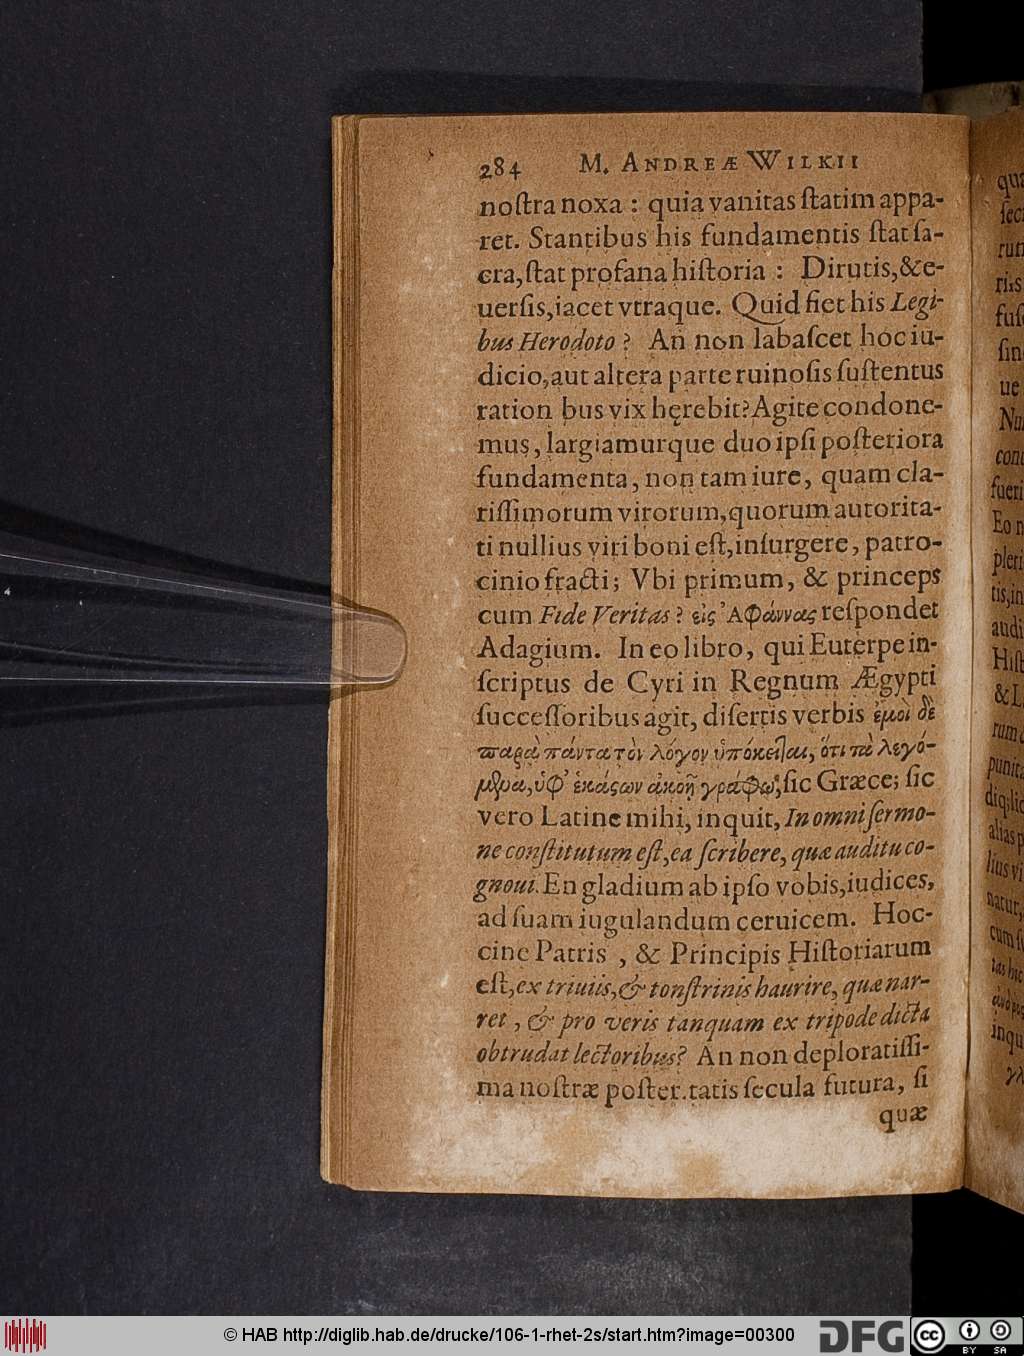 284 M. ANDREÆ WILKII
noſtra noxa : quia vanitas ſtatim appa-
ret. Stantibus his fundamentis ſtat ſa-
cra, ſtat profana hiſtoria : Dirutis, & e-
uerſis, iacet vtraque. Quid fiet his Legi-
bus Herodoto ? An non labaſcet hoc iu-
dicio, aut altera parte ruinoſis ſuſtentus
ration bus vix hęrebit? Agite condone-
mus, largiamurque duo ipſi poſteriora
fundamenta, non tam iure, quam cla-
riſſimorum virorum, quorum autorita-
ti nullius viri boni eſt, inſurgere, patro-
cinio fracti; Vbi primum, & princeps
cum Fide Veritas ? εἰς Ἀφάννας reſpondet
Adagium. In eo libro, qui Euterpe in-
ſcriptus de Cyri in Regnum Ægypti
ſucceſſoribus agit, diſertis verbis ἐμοὶ δὲ
παρὰ πάντα τὸν λόγον ὑπόκειται, ὅτι τὰ λεγό-
μενα, ὑφ' ἑκάστων ἀκοῇ γράφω; ſic Græce; ſic
vero Latine mihi, inquit, In omni ſermo-
ne conſtitutum eſt, ea ſcribere, quæ auditu co-
gnoui. En gladium ab ipſo vobis, iudices,
ad ſuam iugulandum ceruicem. Hoc-
cine Patris , & Principis Hiſtoriarum
eſt, ex triuiis, & tonſtrinis haurire, quæ nar-
ret , & pro veris tanquam ex tripode dicta
obtrudat lectoribus? An non deploratiſſi-
ma noſtræ poſter.tatis ſecula futura, ſi
quæ
© HAB http://diglib.hab.de/drucke/106-1-rhet-2s/start.htm?image=00300
DFG
cc BY SA